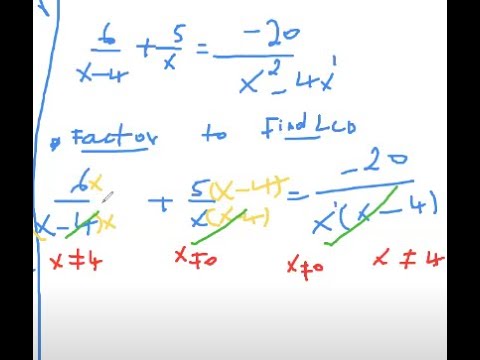 6/(x-4) + 5/x = -20/(x²-4x¹)
Factor to Find LCD
6x/((x-4)x) + 5(x-4)/(x(x-4)) = -20/(x¹(x-4))
x≠4 x≠0 x≠0 x≠4